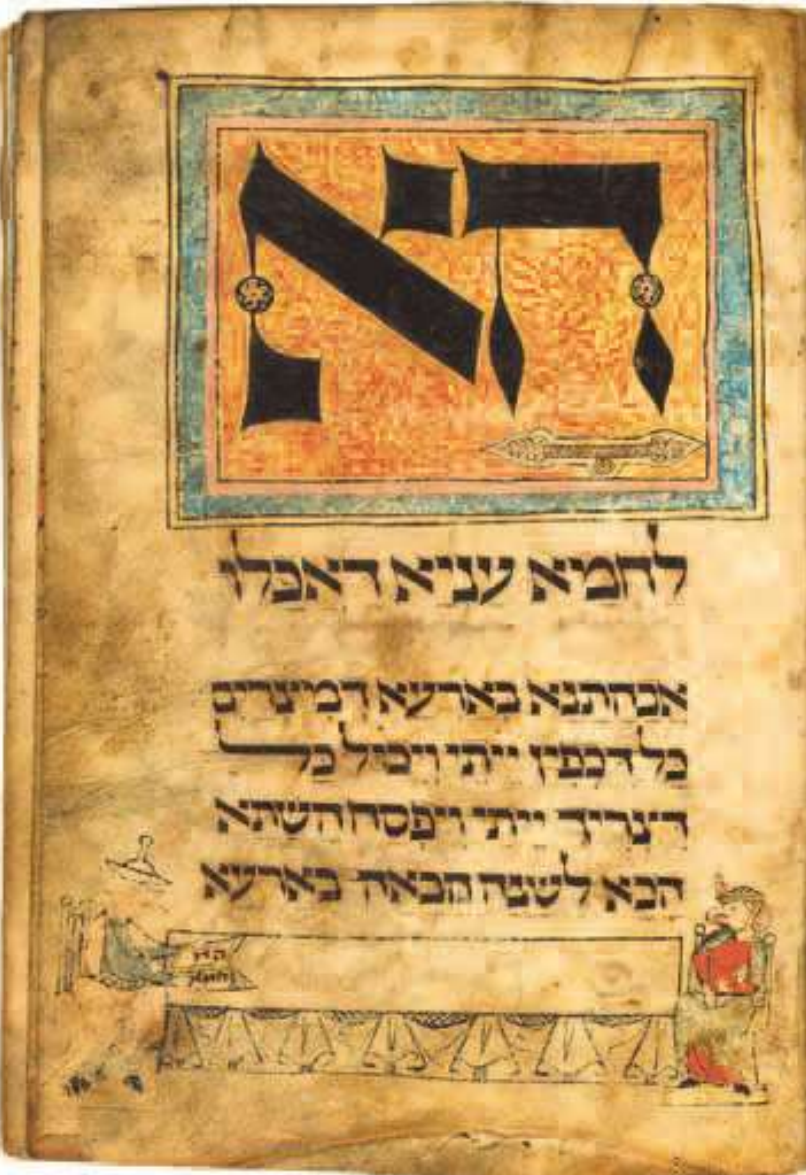 הא
לחמא עניא דאכלו
אבהתנא בארעא דמיצרים
כל דכפין ייתי ויכול כל
דצריך ייתי ויפסח השתא
הכא לשנה הבאה בארעא